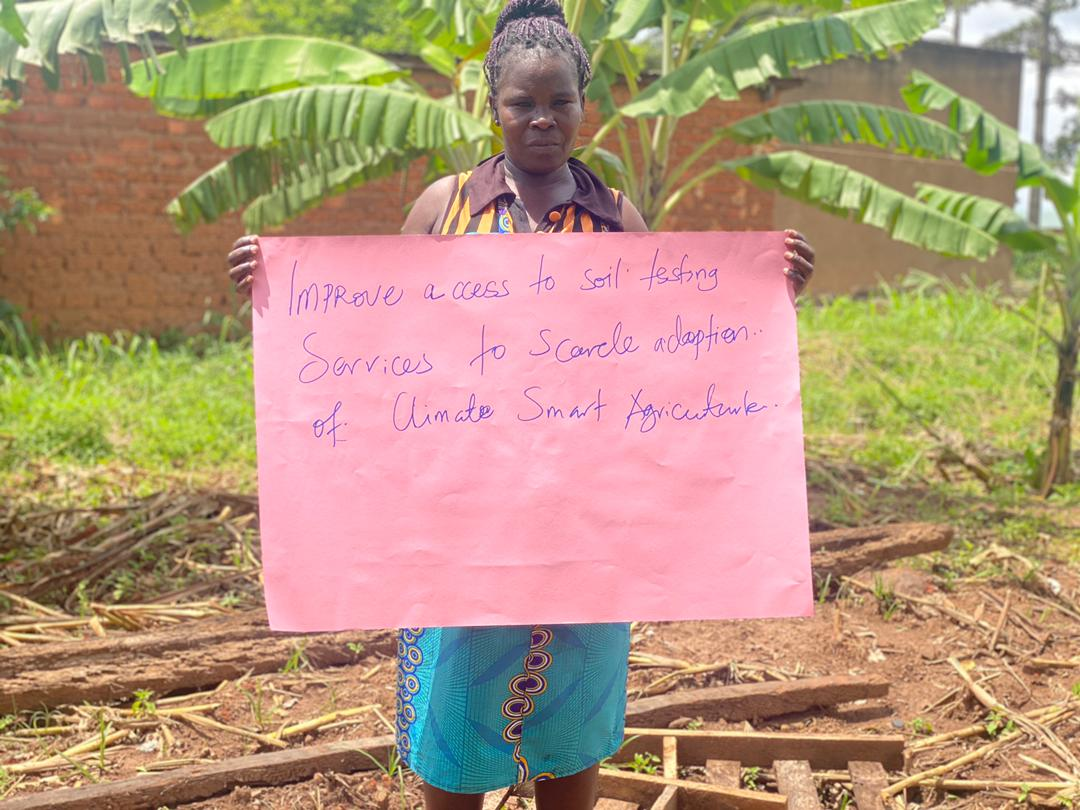 IMPROVE access to soil testing
Services to Scarele adoption..
of. Climate Smart Agriculture.